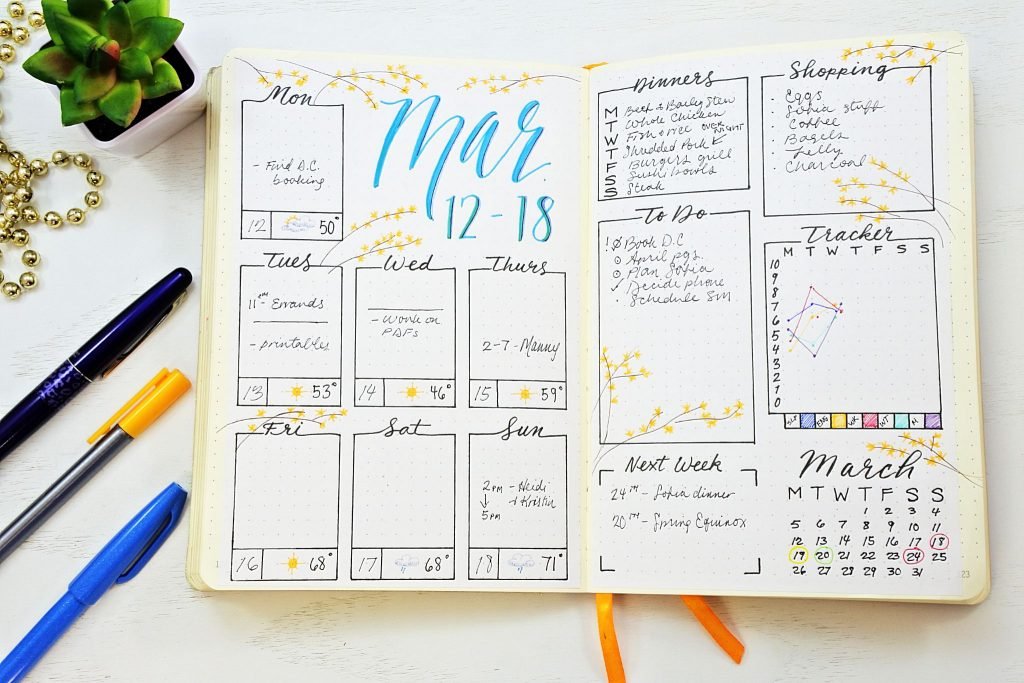 Mon
- Find D.C.
booking
12 50°
Mar
12-18
Tues
11am - Errands
- printables
13 53°
Wed
- Work on
PDFs
14 46°
Thurs
2-7 - Manny
15 59°
Fri
16 68°
Sat
17 68°
Sun
2pm - Heidi
↓ + Kristin
5pm
18 71°
Dinners
M Beef & Barley Stew
T Whole Chicken
W Fish & rice
T Shredded Pork
F Burgers grill
S Sushi bowls
S Steak
OVER NIGHT
Shopping
· Eggs
· Sofia stuff
· Coffee
· Bagels
· Jelly
· Charcoal
To Do
! Book D.C
April pgs.
Plan Sofia
✓ Decide phone
· Schedule SM.
Tracker
M T W T F S S
10
9
8
7
6
5
4
3
2
1
0
SLP WK WT M
Next Week
24TH - Sofia dinner
20TH - Spring Equinox
March
M T W T F S S
1 2 3 4
5 6 7 8 9 10 11
12 13 14 15 16 17 18
19 20 21 22 23 24 25
26 27 28 29 30 31
1
23